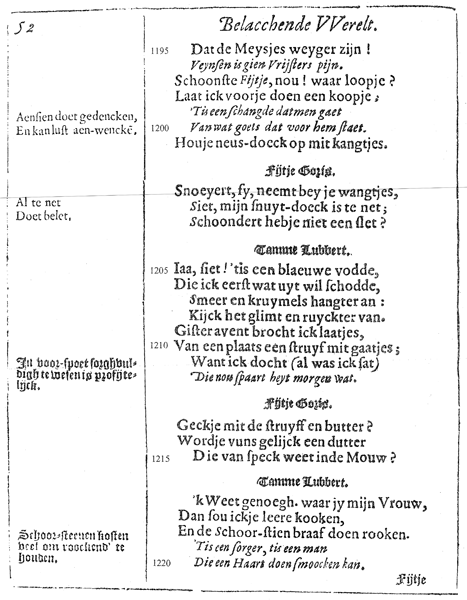 52
Belacchende VVerelt.
1195 Dat de Meysjes weyger zijn !
Veynsen is gien Vrijsters pijn.
Schoonste Fijtje, nou ! waar loopje ?
Laat ick voorje doen een koopje ;
'Tis een schangde datmen gaet
Aensien doet gedencken,
En kan lust aen-wenckē.
1200 Van wat goets dat voor hem staet.
Houje neus-doeck op mit kangtjes.
Fijtje Goris.
Snoeyert, fy, neemt bey je wangtjes,
Al te net
Doet belet.
Siet, mijn snuyt-doeck is te net ;
Schoondert hebje niet een slet ?
Tamme Lubbert.
1205 Iaa, siet ! 'tis een blaeuwe vodde,
Die ick eerst wat uyt wil schodde,
Smeer en kruymels hangter an :
Kijck het glimt en ruyckter van.
Gister avent brocht ick laatjes,
1210 Van een plaats een struyf mit gaatjes ;
In voor-spoet sorghvul-
digh te wesen is profijte-
lijck.
Want ick docht (al was ick sat)
Die nou spaart heyt morgen wat.
Fijtje Goris.
Geckje mit de struyff en butter ?
Wordje vuns gelijck een dutter
1215 Die van speck weet inde Mouw ?
Tamme Lubbert.
'k Weet genoegh. waar jy mijn Vrouw,
Dan sou ickje leere kooken,
En de Schoor-stien braaf doen rooken.
Schoor-steenen kosten
veel om roockend' te
houden.
'Tis een sorger, tis een man
1220 Die een Haart doen smoocken kan.
Fijtje